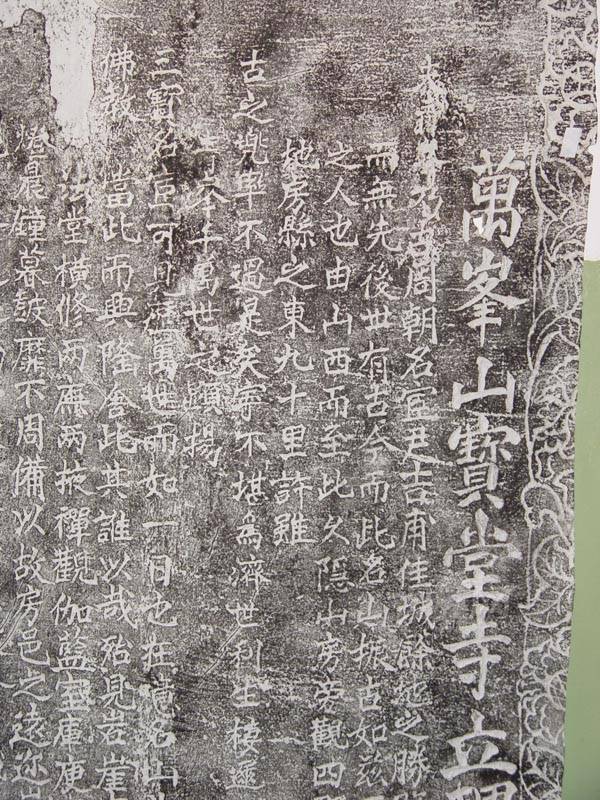 萬峯山寶堂寺立
名周朝名宦尹吉甫佳城餘地之勝
而無先後世有古今而此名山振古如茲
之人也由山西而至此久隱山房旁觀四
地房縣之東九十里許雖
古之兜率不過是矣寧不堪為濟世利生棲遲
今千萬世之頌揚
三寶名亘可見萬世而如一日也在名山
佛教當此而興隆舍此其誰以哉殆見岩崖
堂橫修兩廡兩掖禪觀伽藍庫更
燈晨鐘暮鼓靡不周備以故房邑之遠近